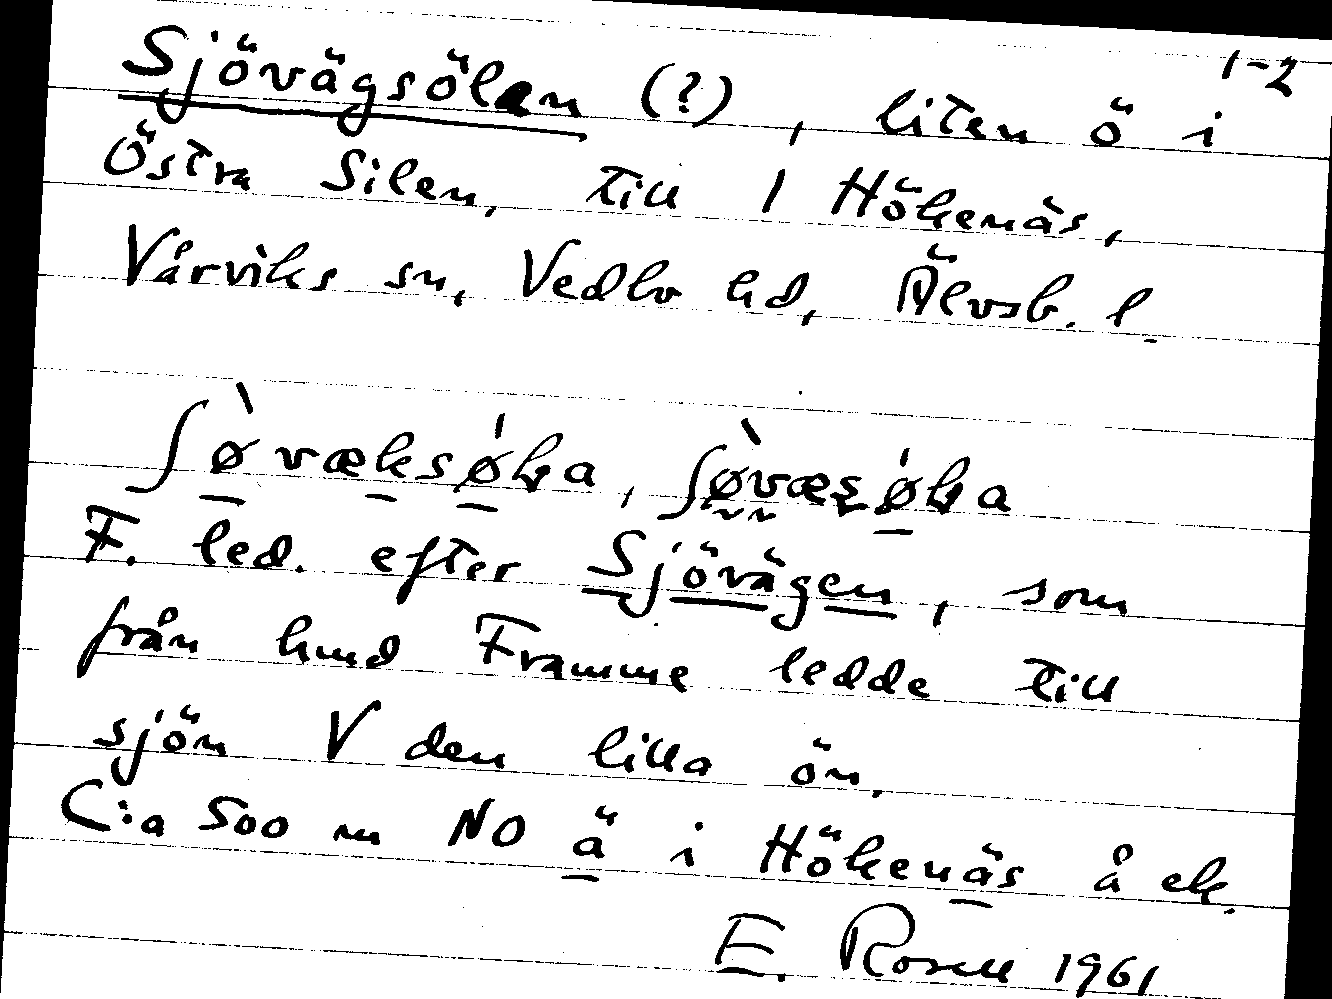 1-2
Sjövägsölen (?), liten ö i
Östra Silen, till 1 Hökenäs,
Vårviks sn, Vedbo hd, Älvsb. l.
ʃø̀væksø̍ɫa, ʃøvæsøɫa
F. led. efter Sjövägen, som
från hmd Framme ledde till
sjön V den lilla ön.
C:a 500 m NO ä i Hökenäs å ek.
E. Rosell 1961